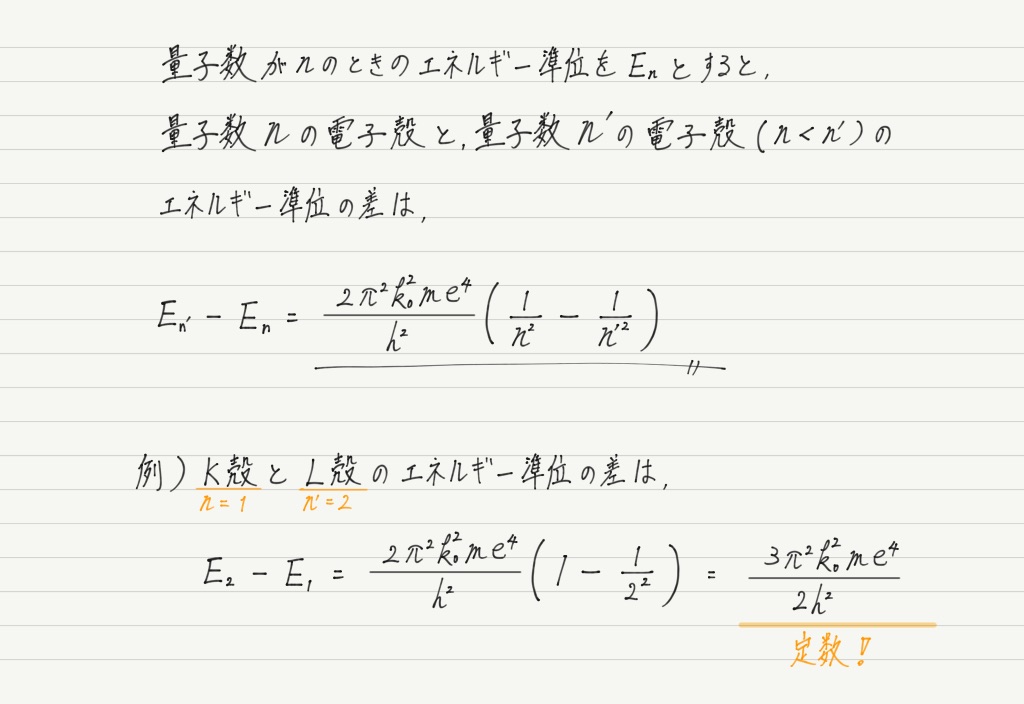 量子数がnのときのエネルギー準位をEₙとすると,
量子数nの電子殻と,量子数n′の電子殻(n<n′)の
エネルギー準位の差は,
Eₙ′ − Eₙ = 2π²k₀²me⁴/h² (1/n² − 1/n′²)
例)K殻とL殻のエネルギー準位の差は,
n=1 n′=2
E₂ − E₁ = 2π²k₀²me⁴/h² (1 − 1/2²) = 3π²k₀²me⁴/2h²
定数!